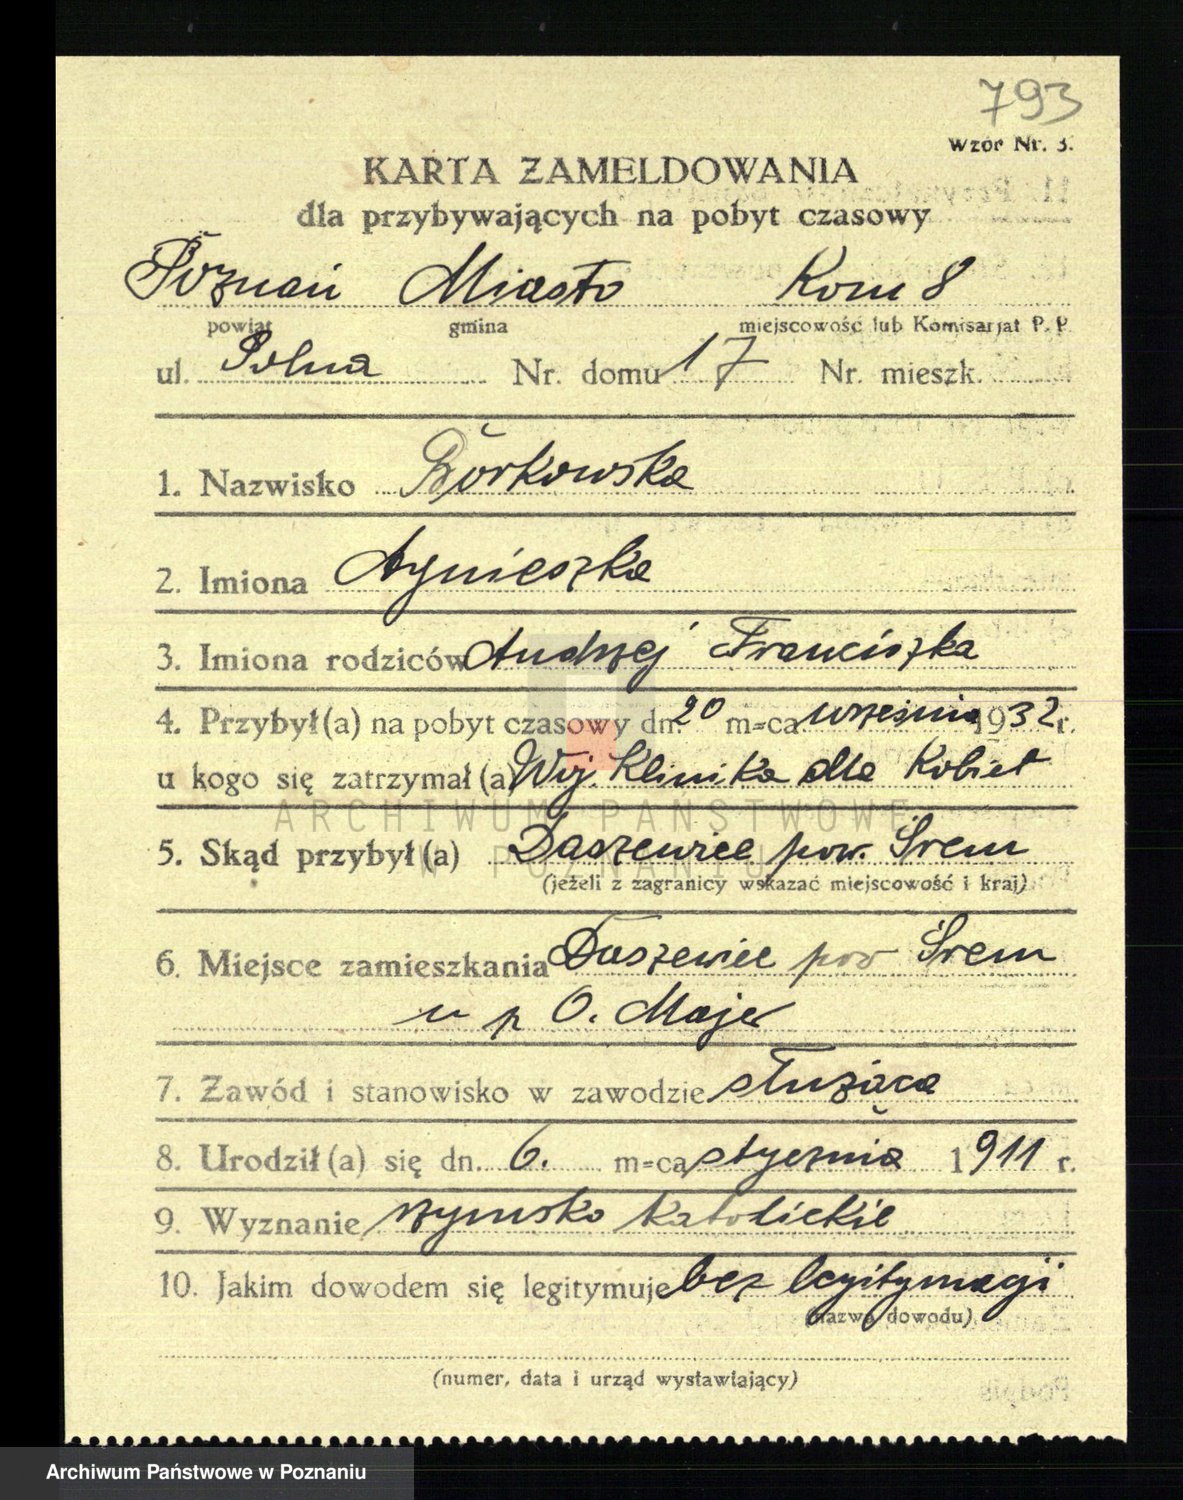 793
Wzór Nr. 3.
KARTA ZAMELDOWANIA
dla przybywających na pobyt czasowy
Poznań Miasto Kom 8
powiat gmina miejscowość lub Komisarjat P. P.
ul. Polna Nr. domu 17 Nr. mieszk.
1. Nazwisko Borkowska
2. Imiona Agnieszka
3. Imiona rodziców Andrzej Franciszka
4. Przybył(a) na pobyt czasowy dn. 20 m=ca września 1932 r.
u kogo się zatrzymał(a) Woj. Klinika dla Kobiet
5. Skąd przybył(a) Daszewice pow. Śrem
(jeżeli z zagranicy wskazać miejscowość i kraj)
6. Miejsce zamieszkania Daszewice pow Śrem
u p O. Majer
7. Zawód i stanowisko w zawodzie służąca
8. Urodził(a) się dn. 6. m=ca stycznia 1911 r.
9. Wyznanie rzymsko katolickie
10. Jakim dowodem się legitymuje bez legitymacji
(nazwa dowodu)
(numer, data i urząd wystawiający)
ARCHIWUM PAŃSTWOWE
W POZNANIU
Archiwum Państwowe w Poznaniu